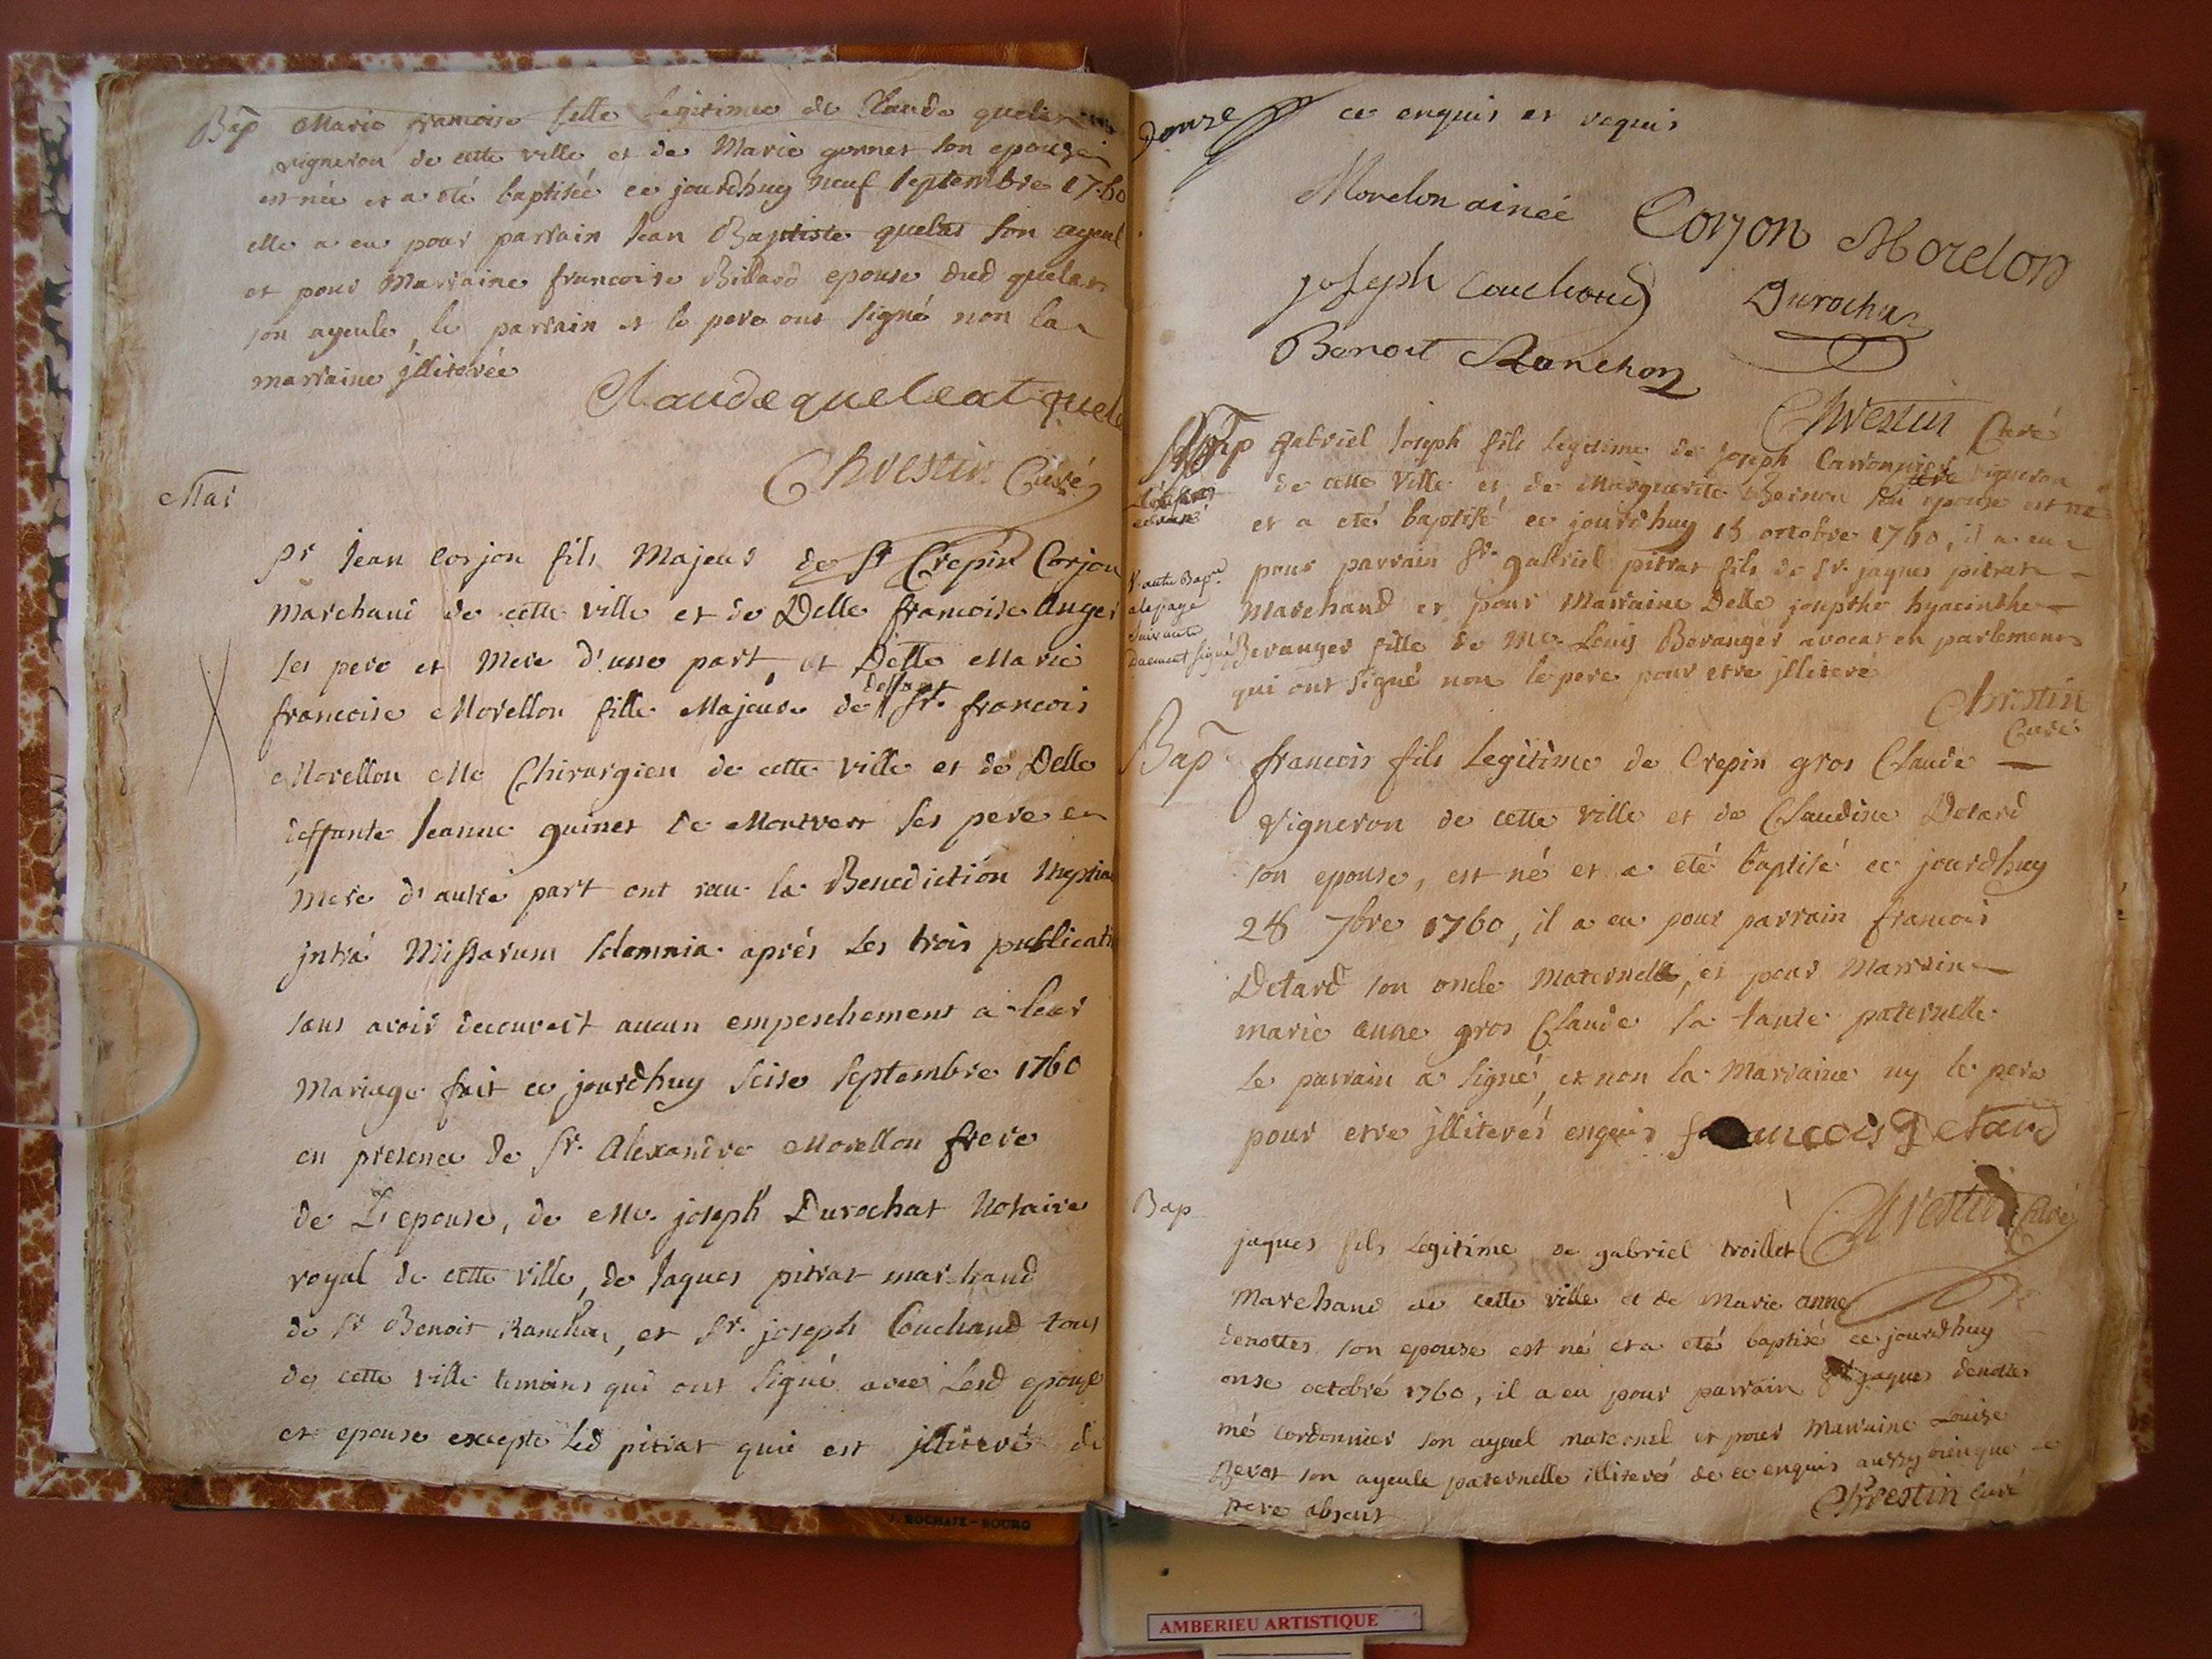 Bap Marie francoise fille legitime de Claude quelat
vigneron de cette ville et de Marie gonnet son epouse
est née et a été baptisée ce jourdhuy neuf septembre 1760
elle a eu pour parrain Jean Baptiste quelat son ayeul
et pour Marraine francoise Billard epouse dud quelat
son ayeule, le parrain et le pere ont signé non la
marraine jlliterée
Claude queleat quel
Chrestin Curé
Mar
Sr Jean Corjon fils Majeur de Sr Crepin Corjon
Marchand de cette ville et de Delle francoise Anger
ses pere et Mere d'une part, et Delle Marie
deffunt
francoise Morellon fille Majeure de Sr. francois
Morellon Me Chirurgien de cette ville et de Delle
deffunte Jeanne guinet de Montvert ses pere et
Mere d'autre part ont recu la Benediction Nuptia
jntra Missarum solemnia aprés les trois publicati
sans avoir decouvert aucun empeschement a leur
Mariage fait ce jourdhuy seise septembre 1760
en presence de Sr. Alexandre Morellon frere
de L'epouse, de Me. joseph Durochat Notaire
royal de cette ville, de Jaques pitrat marchand
de Sr Benoit Ranchon, et Sr. joseph Couchaud tous
de cette ville temoins qui ont signé avec Lesd epoux
et epouse excepté Led pitrat qui est jlliteré de
donze ce enquis et requis
Morelon ainée Corjon Morelon
joseph Couchoud Durochat
Benoit Ranchon
Chrestin Curé
Bap gabriel Joseph fils legitime de Joseph Carronnier vigneron
de cette Ville et de Marguerite Bernon son epouse est né
et a eté baptisé ce jourdhuy 15 octobre 1760, il a eu
pour parrain Sr. gabriel pitrat fils de Sr. jaques pitrat
Marchand et pour Marraine Delle josephe hyacinthe
Beranger fille de Me Louis Beranger avocat en parlement
qui ont signé non le pere pour etre jlliteré
V. autre Bap.
a la page
suivante
duement signé
Chrestin
Curé
Bap francois fils Legitime de Crepin gros Claude
Vigneron de cette ville et de Claudine Detard
son epouse, est né et a eté baptisé ce jourdhuy
28 7bre 1760, il a eu pour parrain francois
Detard son oncle Maternelle, et pour Marraine
marie anne gros Claude sa tante paternelle
Le parrain a signé, et non la Marraine ny le pere
pour etre jlliterés enquis francois Detard
Chrestin Curé
Bap
jaques fils Legitime de gabriel troillet
Marchand de cette ville et de Marie anne
denottes son epouse est né et a eté baptisé ce jourdhuy
onse octobre 1760, il a eu pour parrain jaques denottes
me cordonnier son ayeul maternel et pour Marraine Louise
Berot son ayeule paternelle illiterés de ce enquis aussy bien que le
pere absent Chrestin curé
J. ROCHAIX - BOURG
AMBERIEU ARTISTIQUE